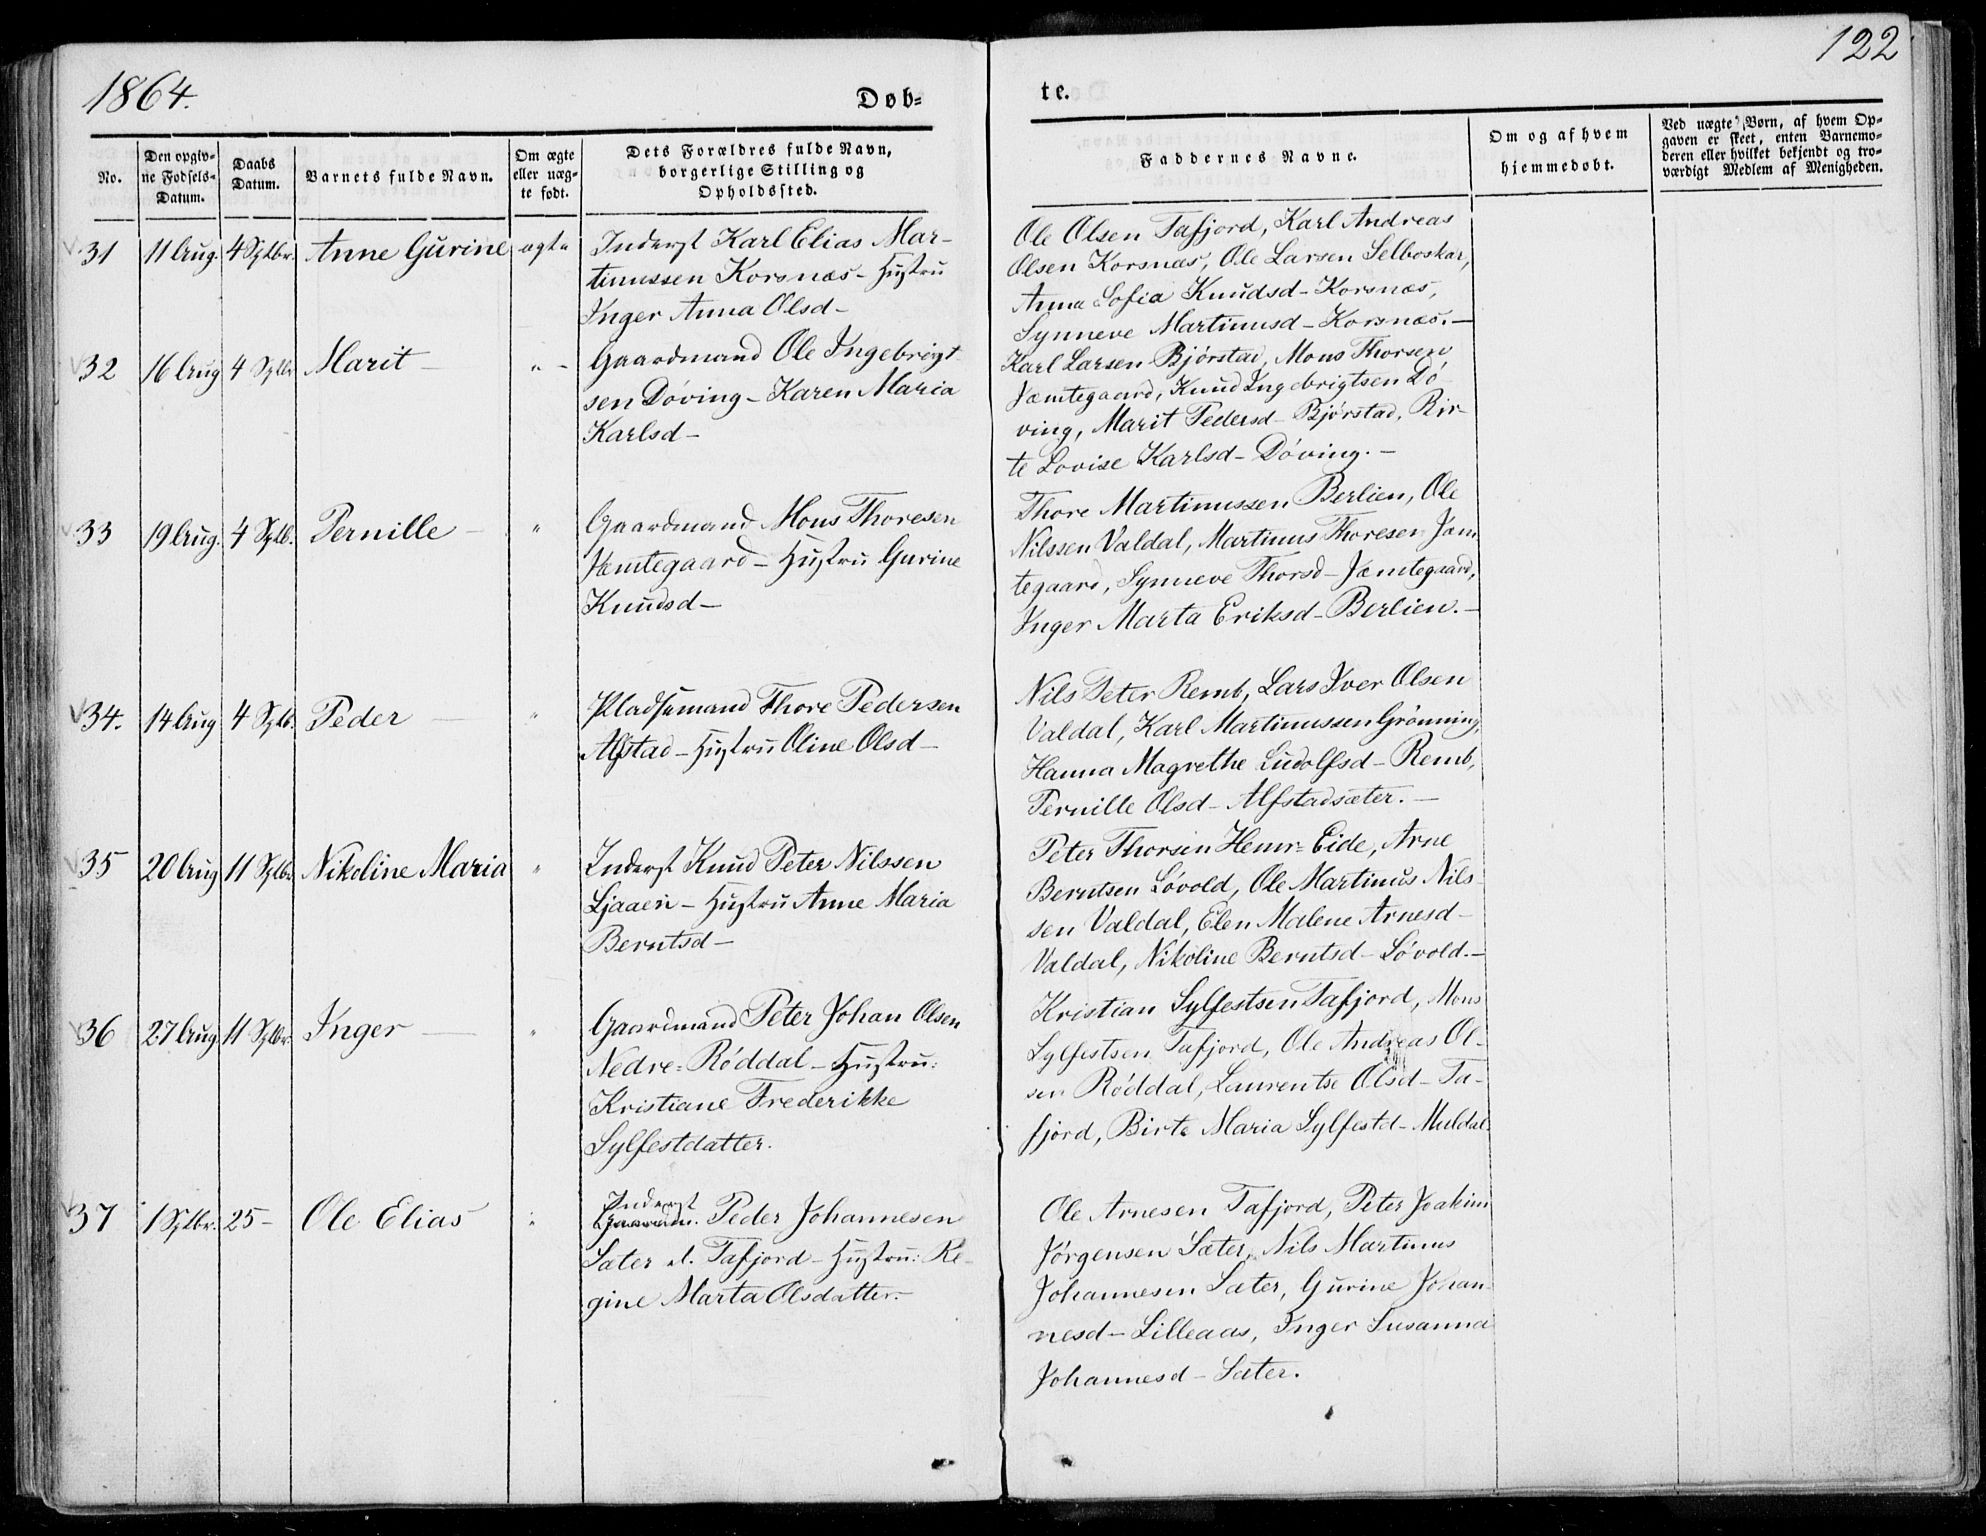 1864.
122
Døb=
te.
No.
Den opgiv-
ne Fødsels-
Datum.
Daabs
Datum.
Barnets fulde Navn.
Om ægte
eller uæg-
te født.
Dets Forældres fulde Navn,
borgerlige Stilling og
Opholdssted.
Faddernes Navne.
Om og af hvem
hjemmedøbt.
Ved uægte Børn, af hvem Op-
gaven er skeet, enten Barnemo-
deren eller hvilket bekjendt og tro-
værdigt Medlem af Menigheden.
31 11 Aug. 4 Sptbr. Anne Gurine ægte
Inderst Karl Elias Mar-
tinussen Korsnæs - Hustru
Inger Anna Olsd -
Ole Olsen Tafjord, Karl Andreas
Olsen Korsnæs, Ole Larsen Selboskar,
Anna Sofia Knudsd - Korsnæs,
Synneve Martinusd - Korsnæs. -
32 16 Aug 4 Sptbr Marit - " -
Gaardmand Ole Ingebrigt-
sen Døving - Karen Maria
Karlsd -
Karl Larsen Bjørstad, Mons Thorsen
Jemtegaard, Knud Ingebrigtsen Dø-
ving, Marit Pedersd - Bjørstad, Bir-
te Lovise Karlsd - Døving. -
33 19 Aug. 4 Sptb. Pernille - "
Gaardmand Mons Thoresen
Jemtegaard - Hustru Gurine
Knudsd -
Thore Martinussen Berlien, Ole
Nilssen Valdal, Martinus Thoresen Jem
tegaard, Synneve Thorsd - Jemtegaard,
Inger Marta Eriksd - Berlien. -
34. 14 Aug 4 Sptb. Peder - "
Pladsemand Thore Pedersen
Alfstad - Hustru Oline Olsd -
Nils Peter Remb, Lars Iver Olsen
Valdal, Karl Martinussen Grønning,
Hanna Magrethe Ludolfsd - Remb,
Pernille Olsd - Alfstadsæter. -
35 20 Aug 11 Sptbr Nikoline Maria "
Inderst Knud Peter Nilssen
Ljaaen - Hustru Anne Maria
Berntsd -
Peter Thorsen Eide, Arne
Berntsen Løvold, Ole Martinus Nils-
sen Valdal, Elen Malene Arnesd -
Valdal, Nikoline Berntsd - Løvold. -
36 27 Aug 11 Sptbr. Inger - "
Gaardmand Peter Johan Olsen
Nedre=Røddal - Hustru:
Kristiane Frederikke
Sylfestdatter.
Kristian Sylfestsen Tafjord, Mons
Sylfestsen Tafjord, Ole Andreas Ol-
sen Røddal, Laurentse Olsd - Ta-
fjord, Birte Maria Sylfestd - Muldal.
37 1 Sptbr. 25 - Ole Elias "
Inderst
Gaardm. Peder Johannesen
Sæter el. Tafjord - Hustru: Re-
gine Marta Olsdatter. -
Ole Arnesen Tafjord, Peter Joakim
Jørgensen Sæter, Nils Martinus
Johannesen Sæter, Gurine Johan-
nesd - Lilleaas, Inger Susanna
Johannesd - Sæter.